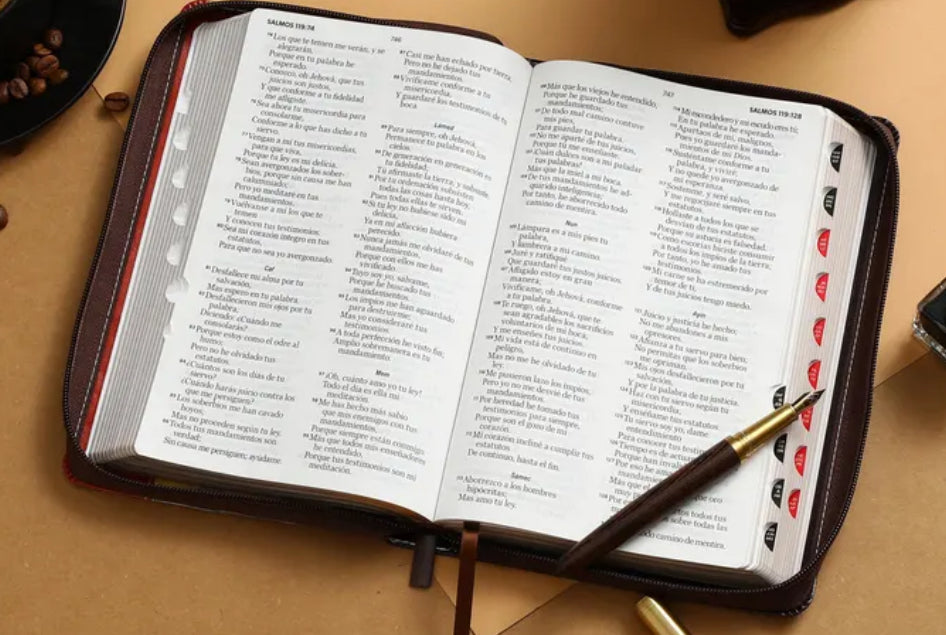 SALMOS 119:74
746
74 Los que te temen me verán, y se
alegrarán,
Porque en tu palabra he
esperado.
75 Conozco, oh Jehová, que tus
juicios son justos,
Y que conforme a tu fidelidad
me afligiste.
76 Sea ahora tu misericordia para
consolarme,
Conforme a lo que has dicho a tu
siervo.
77 Vengan a mí tus misericordias,
para que viva,
Porque tu ley es mi delicia.
78 Sean avergonzados los sober-
bios, porque sin causa me han
calumniado;
Pero yo meditaré en tus
mandamientos.
79 Vuélvanse a mí los que te
temen
Y conocen tus testimonios.
80 Sea mi corazón íntegro en tus
estatutos,
Para que no sea yo avergonzado.
Caf
81 Desfallece mi alma por tu
salvación,
Mas espero en tu palabra.
82 Desfallecieron mis ojos por tu
palabra,
Diciendo: ¿Cuándo me
consolarás?
83 Porque estoy como el odre al
humo;
Pero no he olvidado tus
estatutos.
84 ¿Cuántos son los días de tu
siervo?
¿Cuándo harás juicio contra los
que me persiguen?
85 Los soberbios me han cavado
hoyos;
Mas no proceden según tu ley.
86 Todos tus mandamientos son
verdad;
Sin causa me persiguen; ayúdame.
87 Casi me han echado por tierra,
Pero no he dejado tus
mandamientos.
88 Vivifícame conforme a tu
misericordia,
Y guardaré los testimonios de tu
boca.
Lámed
89 Para siempre, oh Jehová,
Permanece tu palabra en los
cielos.
90 De generación en generación es
tu fidelidad;
Tú afirmaste la tierra, y subsiste.
91 Por tu ordenación subsisten
todas las cosas hasta hoy,
Pues todas ellas te sirven.
92 Si tu ley no hubiese sido mi
delicia,
Ya en mi aflicción hubiera
perecido.
93 Nunca jamás me olvidaré de tus
mandamientos,
Porque con ellos me has
vivificado.
94 Tuyo soy yo, sálvame,
Porque he buscado tus
mandamientos.
95 Los impíos me han aguardado
para destruirme;
Mas yo consideraré tus
testimonios.
96 A toda perfección he visto fin;
Amplio sobremanera es tu
mandamiento.
Mem
97 ¡Oh, cuánto amo yo tu ley!
Todo el día es ella mi
meditación.
98 Me has hecho más sabio
que mis enemigos con tus
mandamientos,
Porque siempre están conmigo.
99 Más que todos mis enseñadores
he entendido,
Porque tus testimonios son mi
meditación.
747
SALMOS 119:128
100 Más que los viejos he entendido,
Porque he guardado tus
mandamientos;
101 De todo mal camino contuve
mis pies,
Para guardar tu palabra.
102 No me aparté de tus juicios,
Porque tú me enseñaste.
103 ¡Cuán dulces son a mi paladar
tus palabras!
Más que la miel a mi boca.
104 De tus mandamientos he ad-
quirido inteligencia;
Por tanto, he aborrecido todo
camino de mentira.
Nun
105 Lámpara es a mis pies tu
palabra,
Y lumbrera a mi camino.
106 Juré y ratifiqué
Que guardaré tus justos juicios.
107 Afligido estoy en gran
manera;
Vivifícame, oh Jehová, conforme
a tu palabra.
108 Te ruego, oh Jehová, que te
sean agradables los sacrificios
voluntarios de mi boca,
Y me enseñes tus juicios.
109 Mi vida está de continuo en
peligro,
Mas no me he olvidado de tu
ley.
110 Me pusieron lazo los impíos,
Pero yo no me desvié de tus
mandamientos.
111 Por heredad he tomado tus
testimonios para siempre,
Porque son el gozo de mi
corazón.
112 Mi corazón incliné a cumplir tus
estatutos
De continuo, hasta el fin.
Sámec
113 Aborrezco a los hombres
hipócritas;
Mas amo tu ley.
114 Mi escondedero y mi escudo eres tú;
En tu palabra he esperado.
115 Apartaos de mí, malignos,
Pues yo guardaré los manda-
mientos de mi Dios.
116 Susténtame conforme a tu
palabra, y viviré;
Y no quede yo avergonzado de
mi esperanza.
117 Sostenme, y seré salvo,
Y me regocijaré siempre en tus
estatutos.
118 Hollaste a todos los que se
desvían de tus estatutos,
Porque su astucia es falsedad.
119 Como escorias hiciste consumir
a todos los impíos de la tierra;
Por tanto, yo he amado tus
testimonios.
120 Mi carne se ha estremecido por
temor de ti,
Y de tus juicios tengo miedo.
Ayin
121 Juicio y justicia he hecho;
No me abandones a mis
opresores.
122 Afianza a tu siervo para bien;
No permitas que los soberbios
me opriman.
123 Mis ojos desfallecieron por tu
salvación,
Y por la palabra de tu justicia.
124 Haz con tu siervo según tu
misericordia,
Y enséñame tus estatutos.
125 Tu siervo soy yo, dame
entendimiento
Para conocer tus
126 Tiempo es de
Porque han
127 Por eso he
mandamientos
Más que el oro
muy
128 todos tus
sobre todas las
camino de mentira.